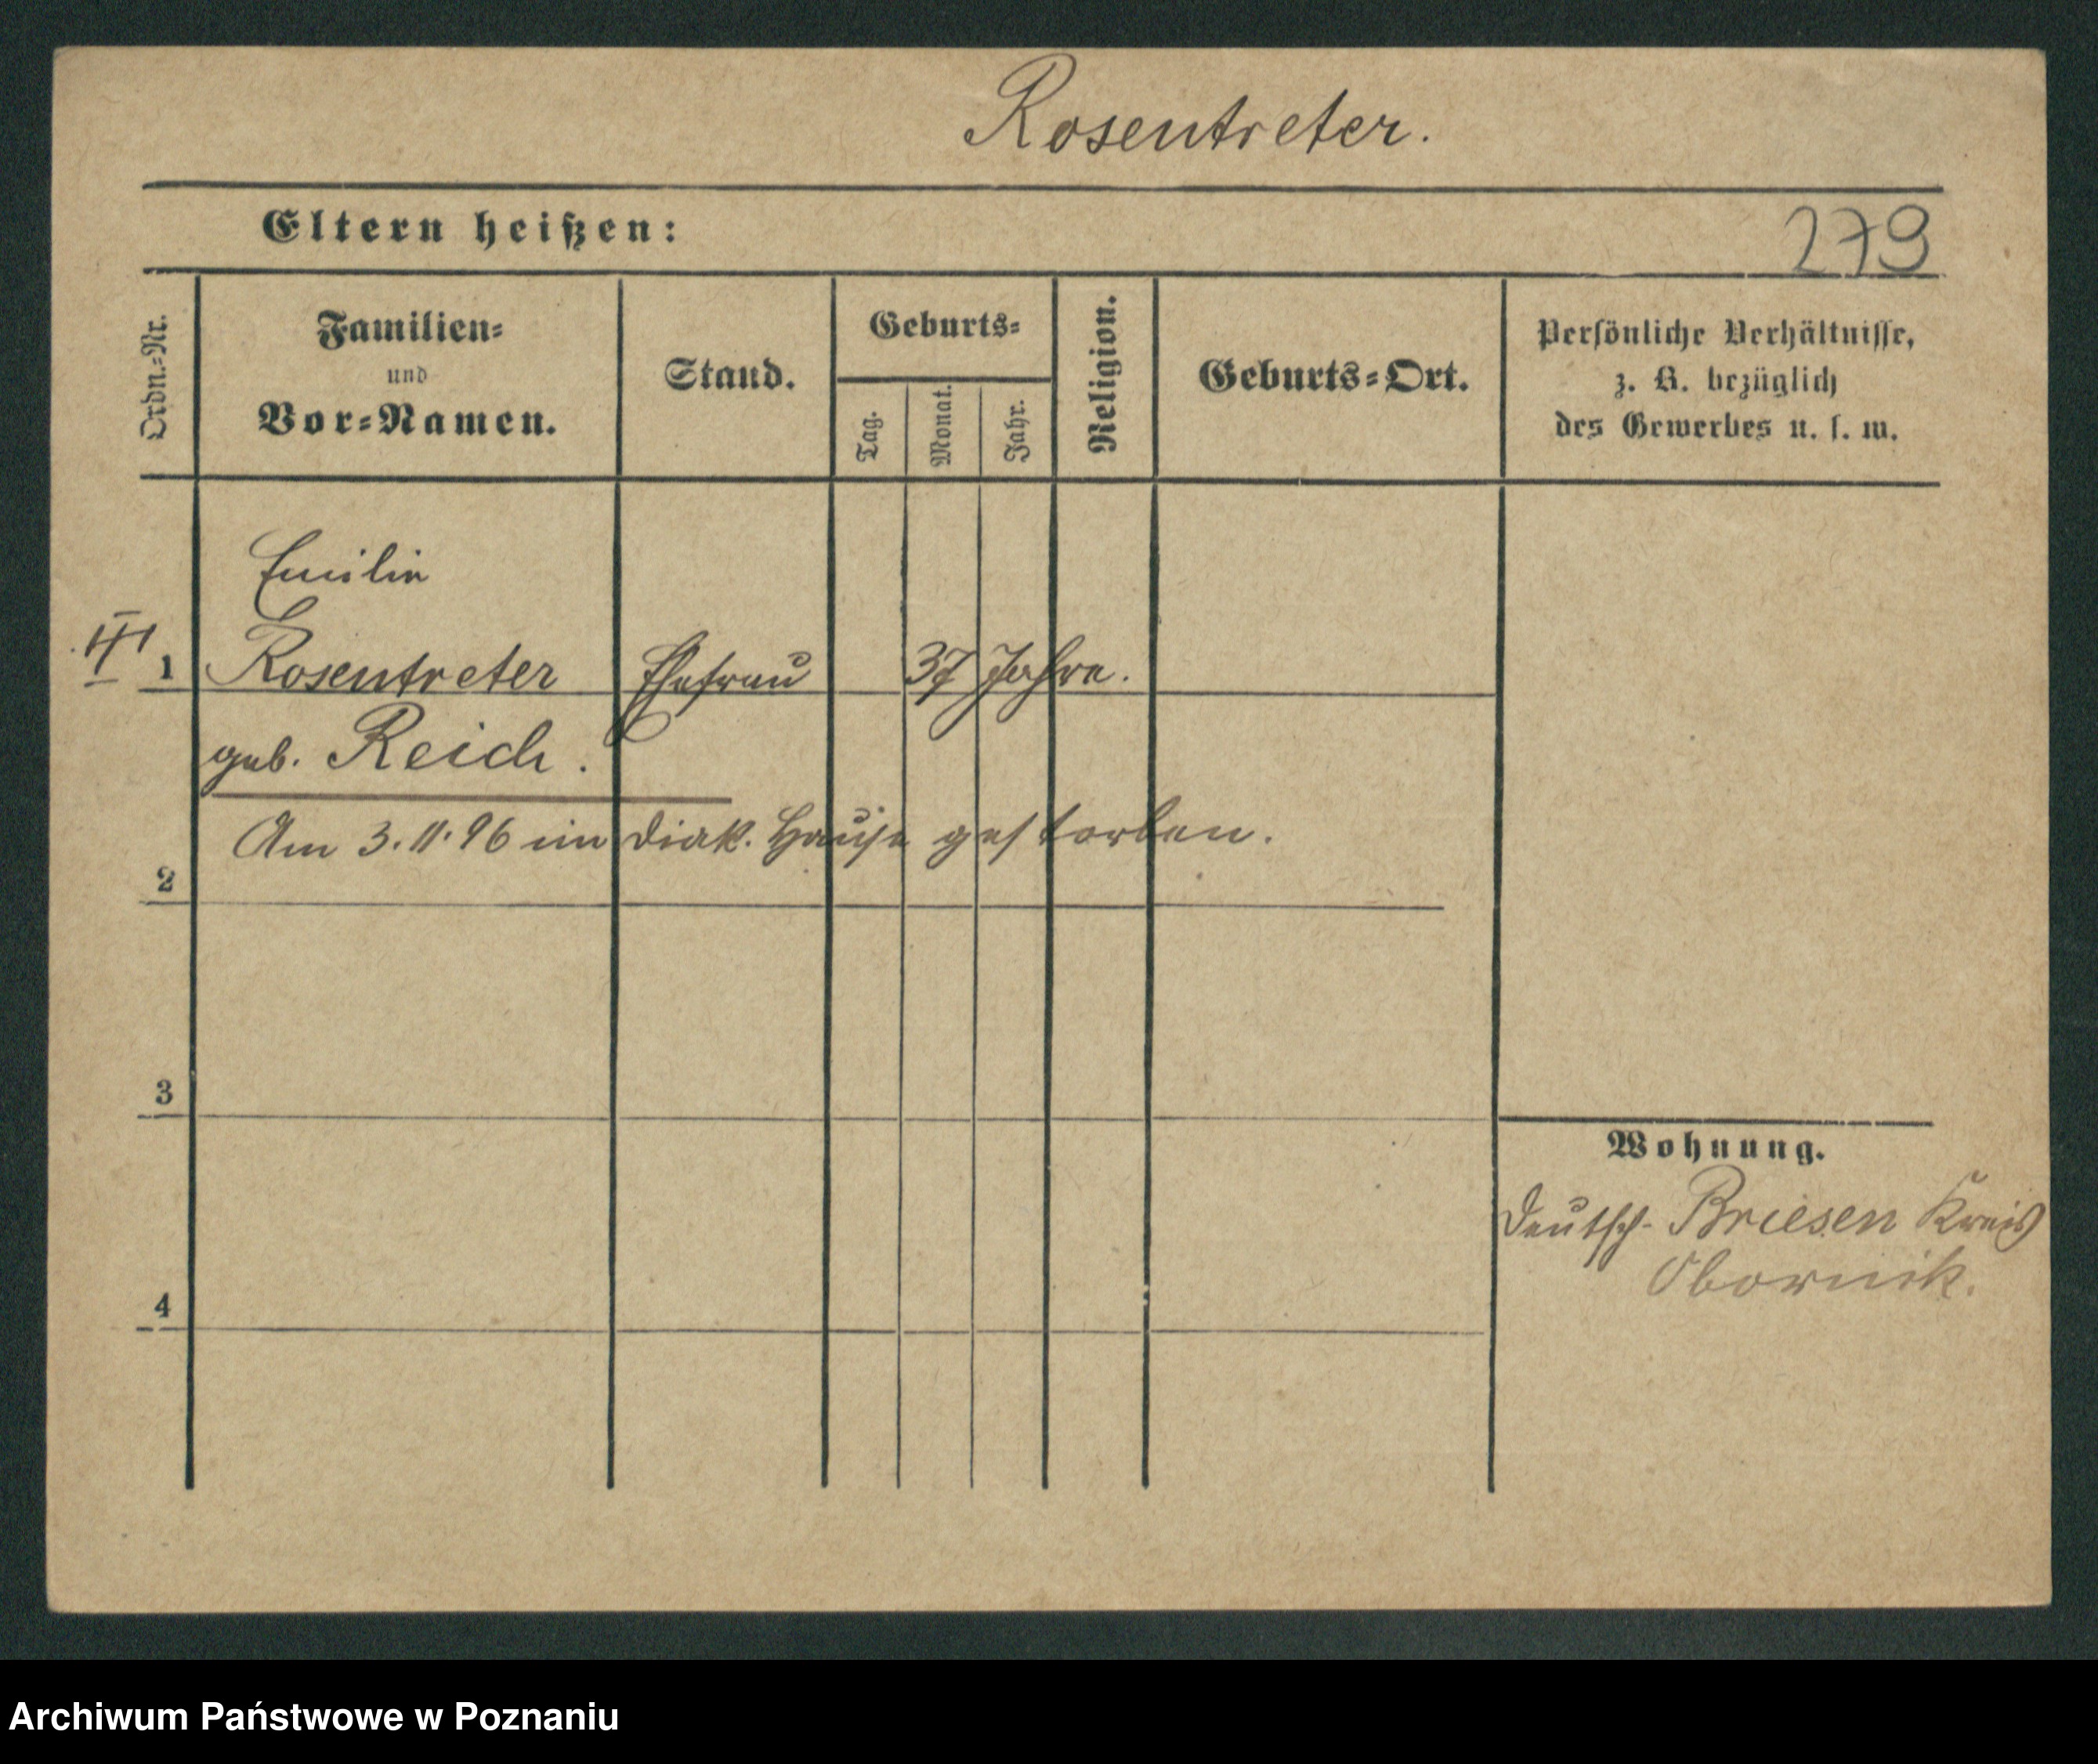 Rosentreter.
Eltern heißen:
279
Ordn.-Nr.
Familien-
und
Vor-Namen.
Stand.
Geburts-
Tag.
Monat.
Jahr.
Religion.
Geburts-Ort.
Persönliche Verhältnisse,
z. B. bezüglich
des Gewerbes u. s. w.
Emilie
1 Rosentreter Ehefrau 37 Jahre.
geb. Reich.
Am 3.11.96 im Diak. Hause gestorben.
2
3
Wohnung.
Deutsch-Briesen Kreis
Obornik.
4
Archiwum Państwowe w Poznaniu